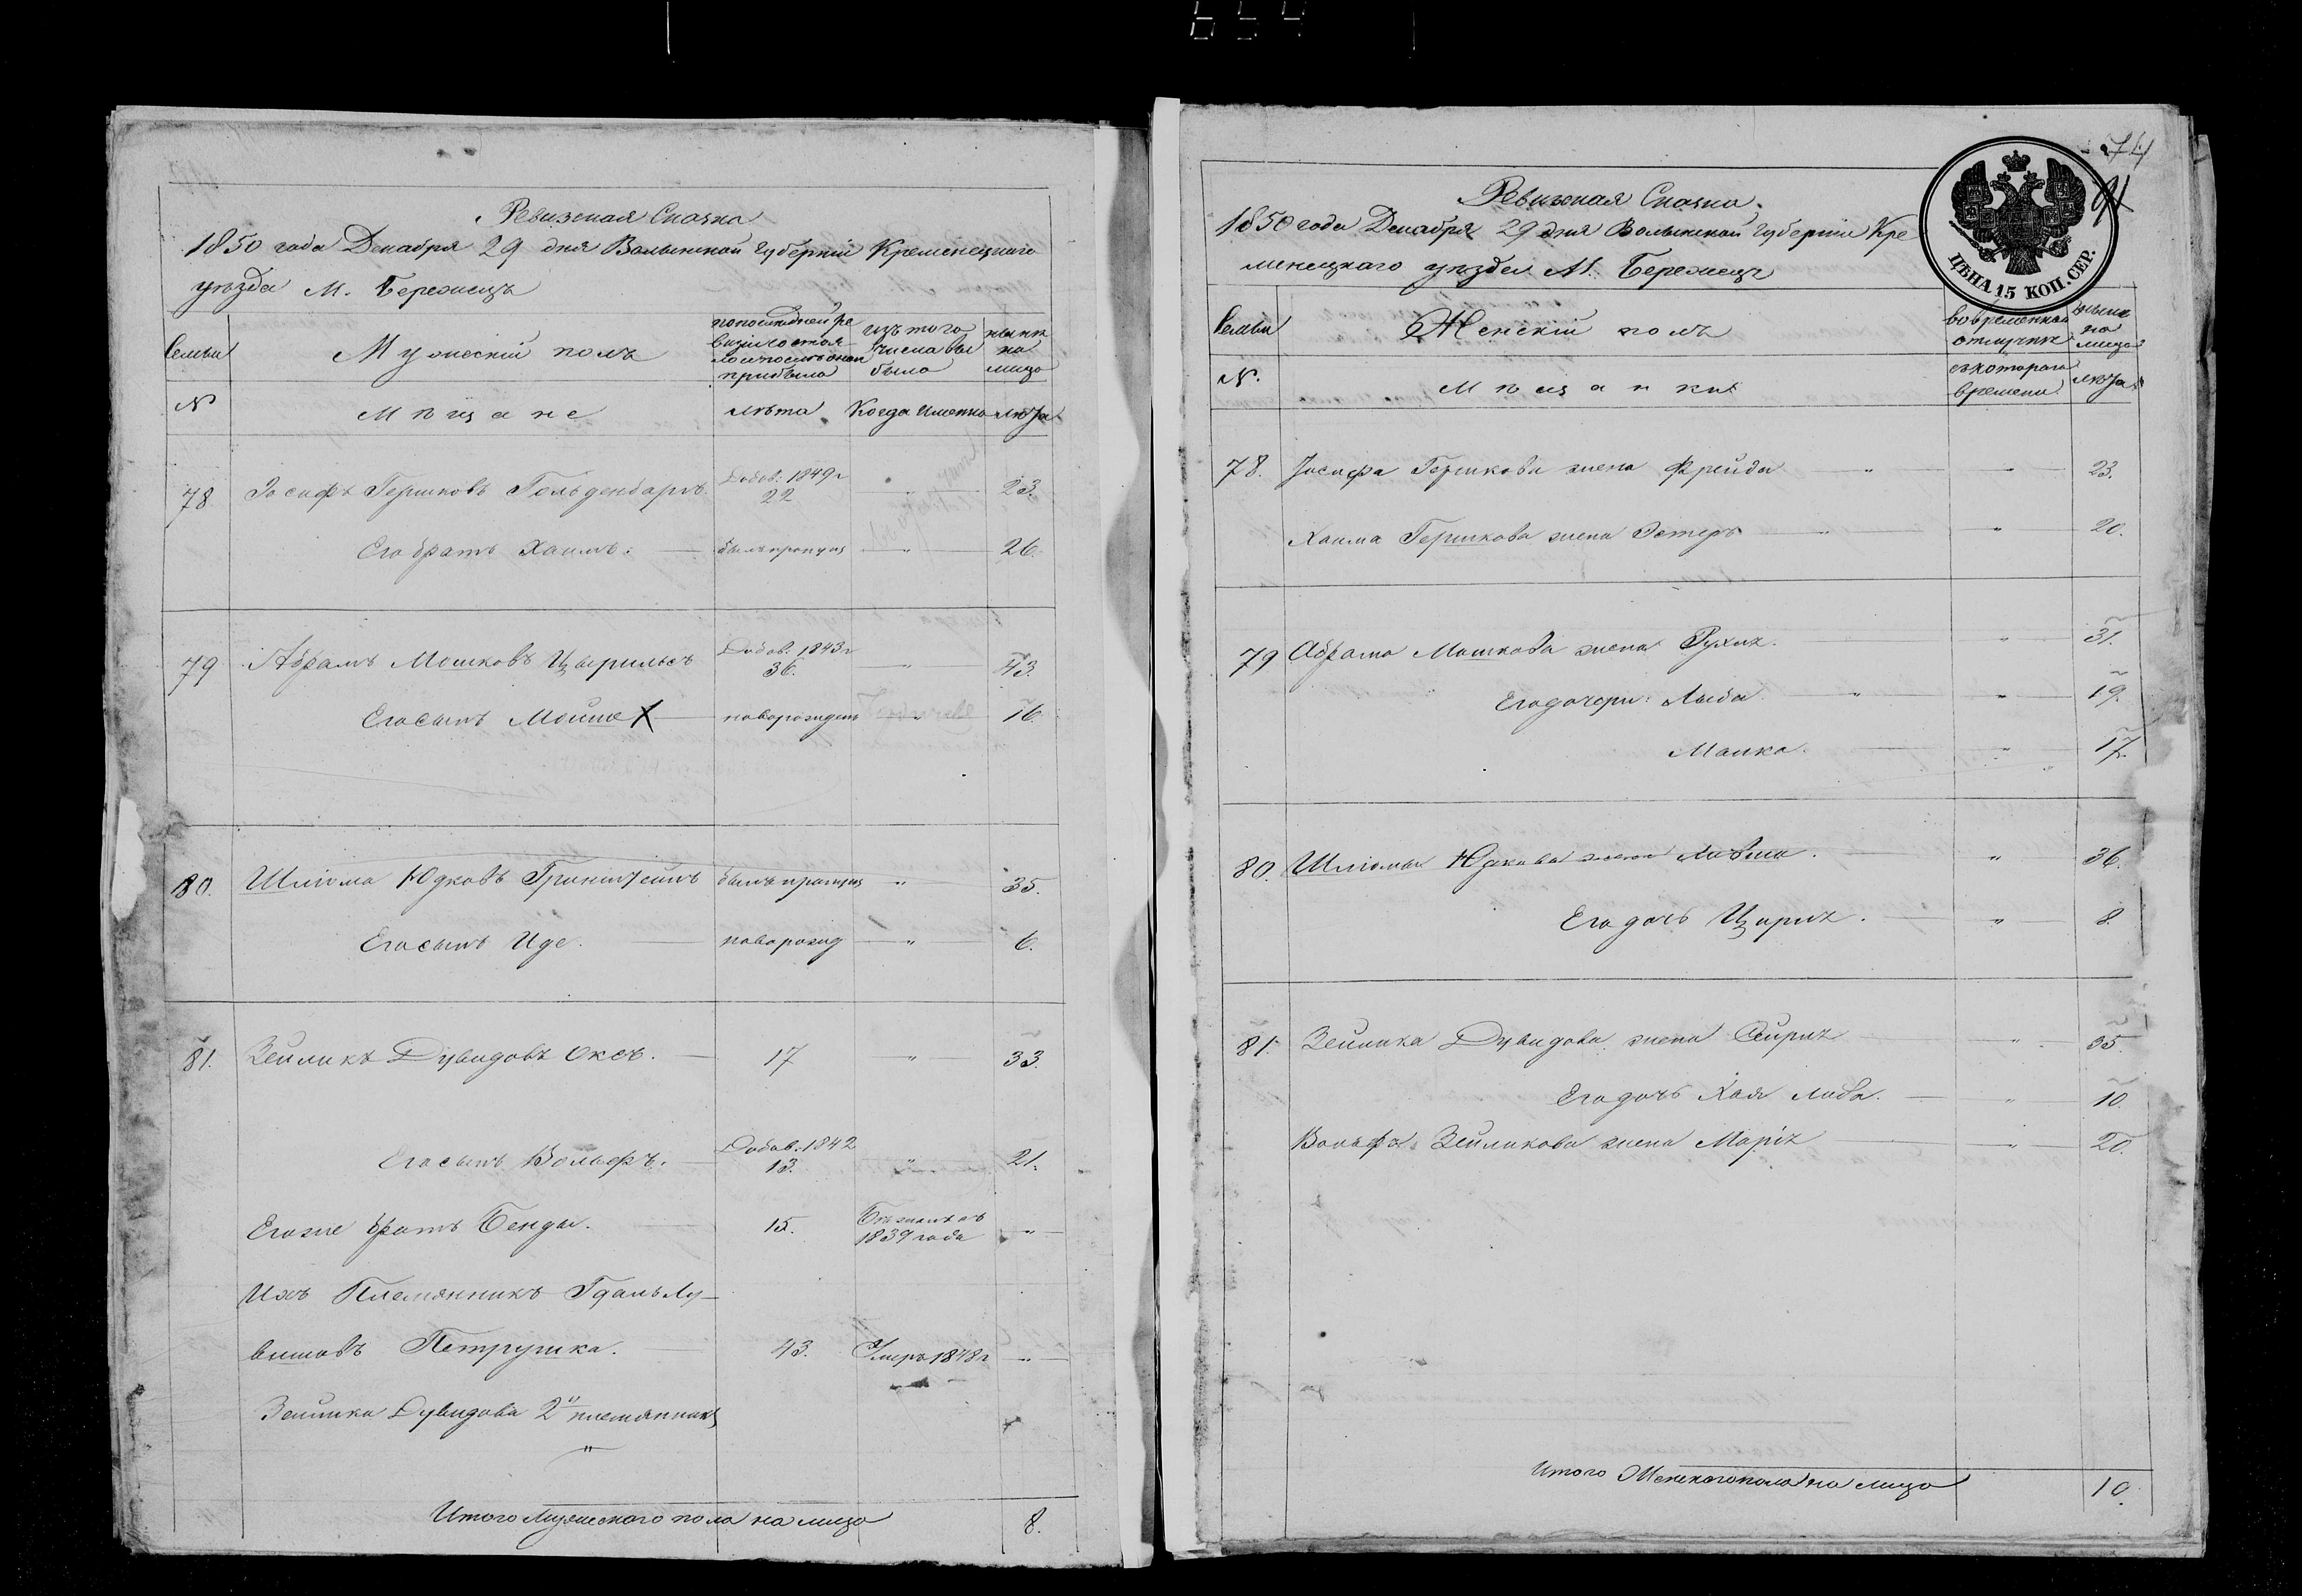 654
Ревизская Сказка
1850 года Декабря 29 дня Волынской Губерніи Кременецкаго
уѣзда м. Бережецъ
Семьи
Мужескій полъ
по последней ре
визіи состоя
ло и после оной
прибыло
изъ того
числа вы
было
нынѣ
на
лицо
№
Мѣщане
лѣта
Когда именно
лѣта
78
Іосифъ Гершковъ Гольденбаргъ.
Добав: 1849 г
22
"
23.
Его братъ Хаимъ.
былъ пропущ
"
26.
79
Абрамъ Мошковъ
Добав: 1843 г
36.
"
43.
Его сынъ Мойше X
новорожденъ
"
16.
80.
Шліома Юдковъ Гринштейнъ
былъ пропущ
"
35.
Его сынъ Иде.
новорожд
"
6.
81.
Зейликъ Дувидовъ Оксъ.
17
"
33.
Его сынъ Вольфъ.
Добав: 1842
13.
"
21.
Его же братъ Бенды.
15.
1839 года
"
Ихъ Племянникъ Гдаль Лу-
вишовъ Петрушка.
43.
Умеръ 1848 г
"
Зейлика Дувидова 2й племянникъ
"
Итого Мужескаго пола на лицо
8.
74
ЦѢНА 15 КОП. СЕР.
Ревизская Сказка.
1850 года Декабря 29 дня Волынской Губерніи Кре
менецкаго уѣзда М. Бережецъ
Семьи
Женскій полъ
во временной
отлучкѣ
нынѣ
на
лицо
№.
Мѣщанки
съ котораго
времени
лѣта
78.
Іосифа Гершкова жена Фрейда
"
"
23.
Хаима Гершкова жена Эстеръ
"
"
20.
79
Абрама Мошкова жена Рухля.
"
31.
Его дочери: Лыба
"
"
19.
Малка.
"
17.
80.
Шліомы Юдкова жена
"
36.
Его дочь Цирля.
"
8.
81.
Зейлика Дувидова жена Сырля
"
35.
Его дочь Хая Либа.
"
10.
Вольфа Зейликова жена Марія
"
20.
Итого Женскаго пола на лицо
10.